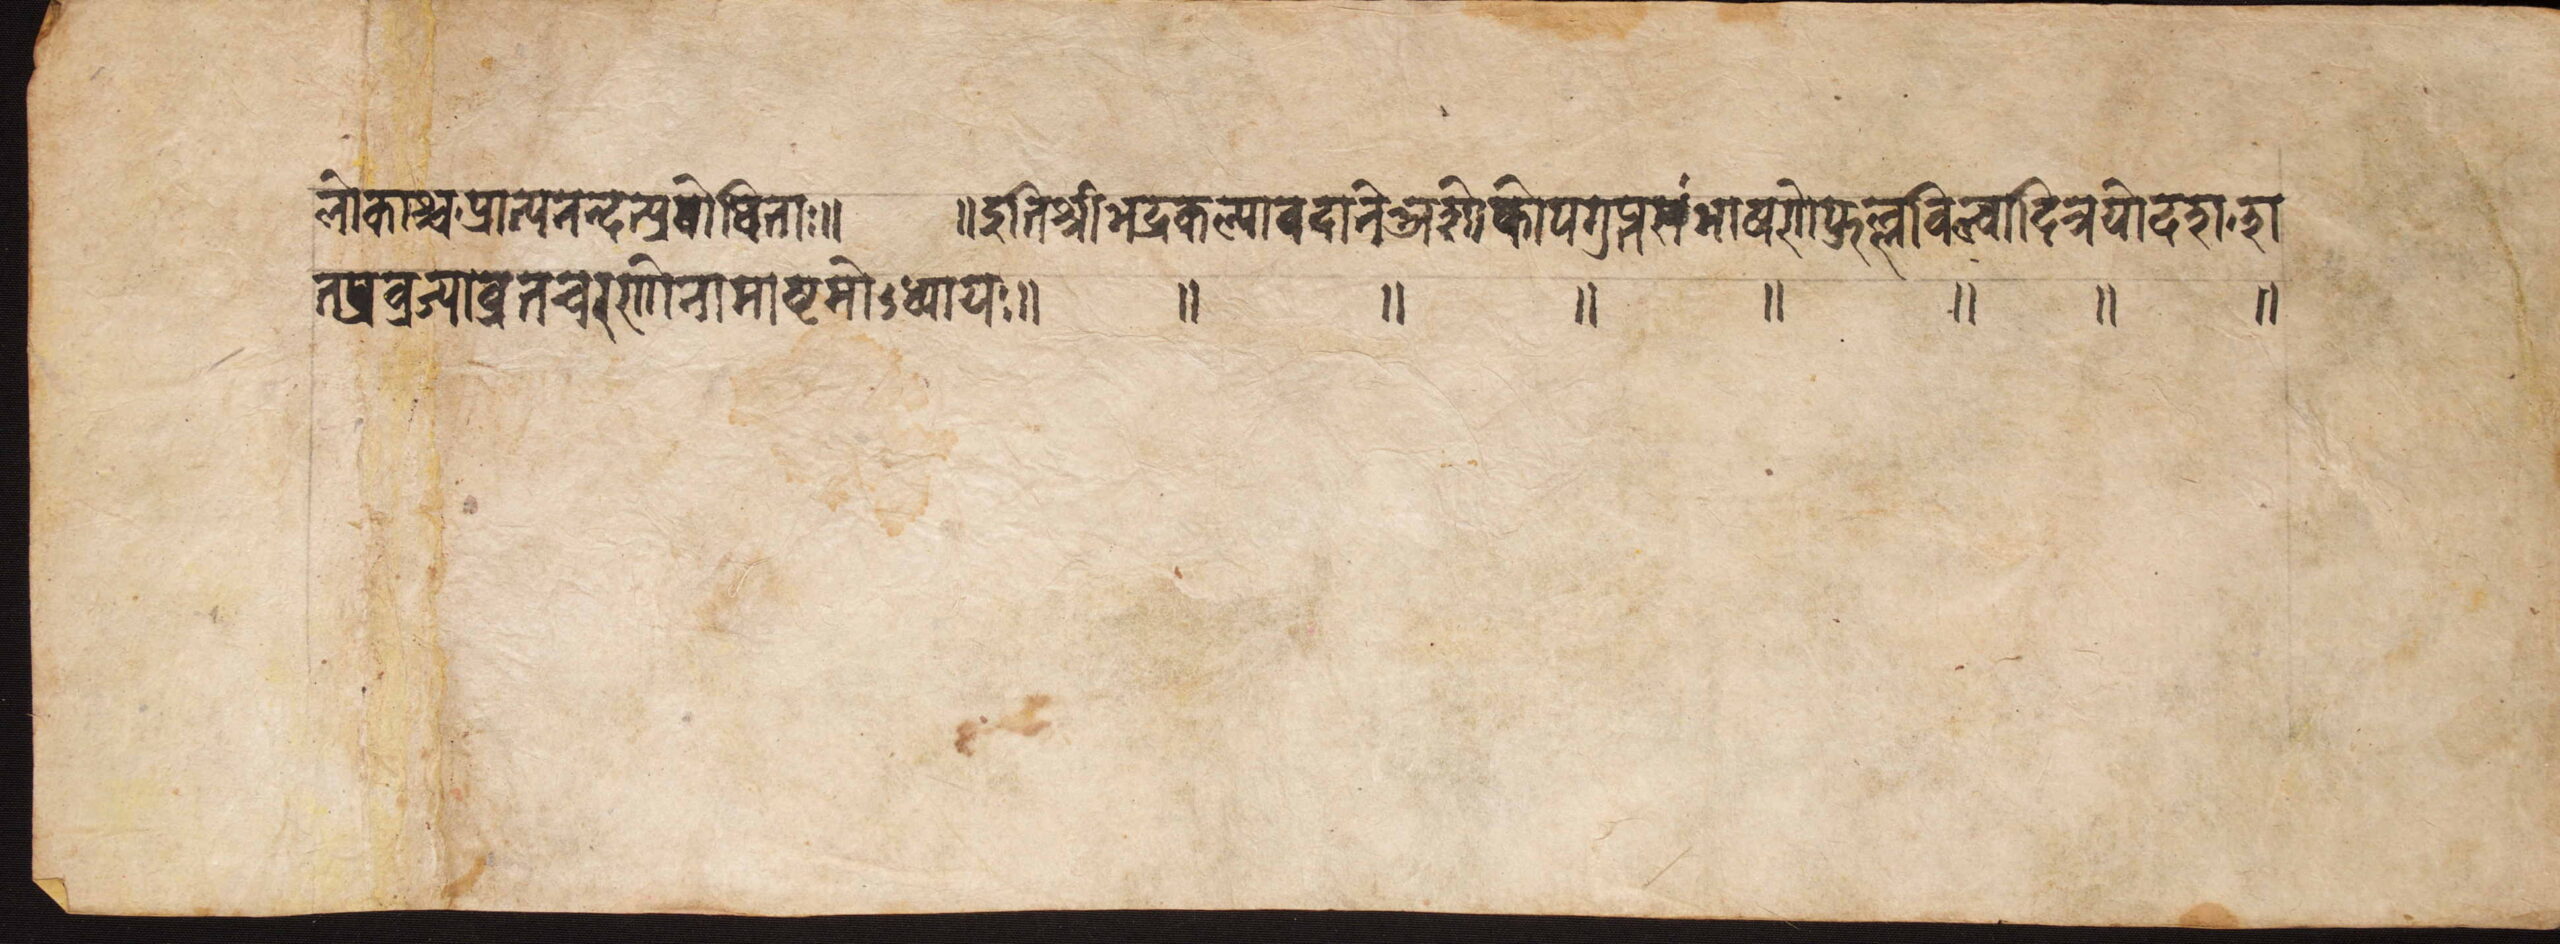 लोकाश्च प्रात्यनन्दत्प्रबोधिताः॥ ॥इतिश्रीभद्रकल्पावदाने अशोकोपगुप्तसंभाषणे फुल्लविल्वादित्रयोदशश
तप्रव्रज्याव्रतचरणोनामाष्टमोऽध्यायः॥ ॥ ॥ ॥ ॥ ॥ ॥ ॥